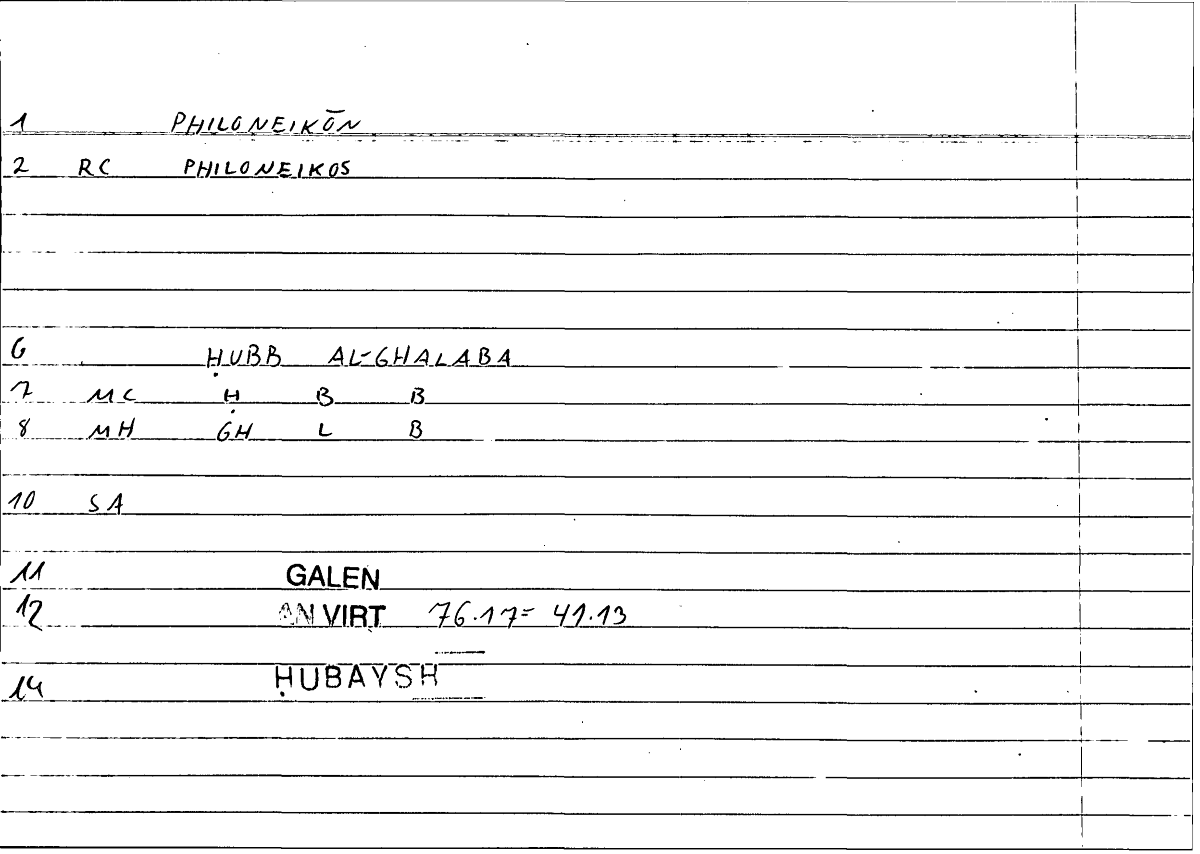 1 PHILONEIKŌN
2 RC PHILONEIKOS
6 ḤUBB AL-GHALABA
7 MC Ḥ B B
8 MH GH L B
10 SA
11 GALEN
12 AN VIRT 76.17= 41.13
14 ḤUBAYSH